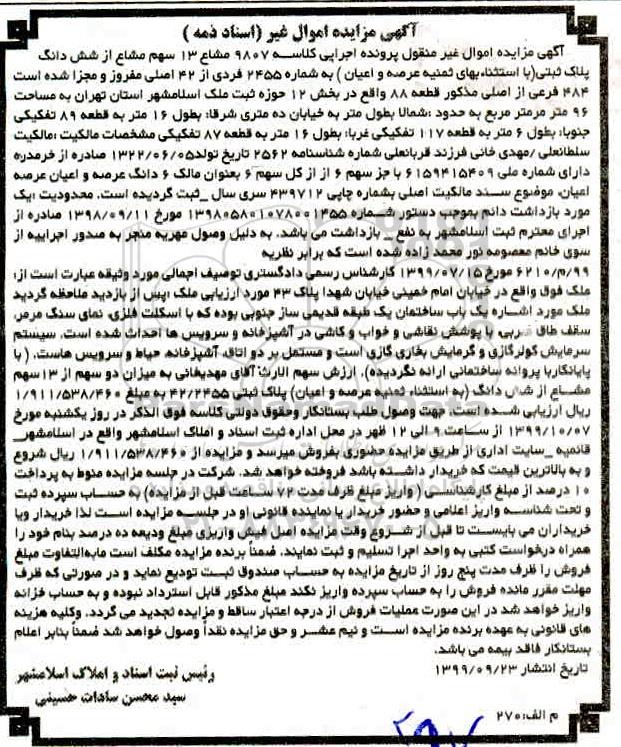 آگهی مزایده اموال غیر (اسناد ذمه )
آگهی مزایده اموال غیر منقول پرونده اجرایی کلاسه ۹۸۰۷ مشاع ۱۳ سهم مشاع از شش دانگ
پلاک ثبتی(با استثناءبهای ثمنیه عرصه و اعیان ) به شماره ۲۴۵۵ فردی از ۴۲ اصلی مفروز و مجزا شده است
۴۸۴ فرعی از اصلی مذکور قطعه ۸۸ واقع در بخش ۱۲ حوزه ثبت ملک اسلامشهر استان تهران به مساحت
۹۶ متر مرمتر مربع به حدود :شمالا بطول متر به خیابان ده متری شرقا: بطول ۱۶ متر به قطعه ۸۹ تفکیکی
جنوبا: بطول ۶ متر به قطعه ۱۱۷ تفکیکی غربا: بطول ۱۶ متر به قطعه ۸۷ تفکیکی مشخصات مالکیت :مالکیت
سلطانعلی /مهدی خانی فرزند قربانعلی شماره شناسنامه ۲۵۶۲ تاریخ تولد۱۳۲۲/۰۶/۰۵ صادره از خرمدره
دارای شماره ملی ۶۱۵۹۴۱۵۴۰۹ با جز سهم ۶ از از کل سهم ۶ بعنوان مالک ۶ دانگ عرصه و اعیان عرصه
اعیان، موضوع سند مالکیت اصلی بشماره چاپی ۴۳۹۷۱۲ سری سال _ثبت گردیده است. محدودیت :یک
مورد بازداشت دائم بموجب دستور شماره ۱۳۹۸۰۵۸۰۱۰۷۸۰۰۱۴۵۵ مورخ ۱۳۹۸/۰۹/۱۱ صادره از
اجرای محترم ثبت اسلامشهر به نفع_ بازداشت می باشد. به دلیل وصول مهریه منجر به صدور اجراییه از
سوی خانم معصومه نور محمد زاده شده است که برابر نظریه
۶۲۱۰/م/۹۹ مورخ ۱۳۹۹/۰۷/۱۵ کارشناس رسمی دادگستری توصیف اجمالی مورد وثیقه عبارت است از:
ملک فوق واقع در خیابان امام خمینی خیابان شهدا پلاک ۴۳ مورد ارزیابی ملک :پس از بازدید ملاحظه گردید
ملک مورد اشاره یک باب ساختمان یک طبقه قدیمی ساز جنوبی بوده که با اسکلت فلزی، نمای سنگ مرمر،
سقف طاق ضربی، با پوشش نقاشی و خواب و کاشی در آشپزخانه و سرویس ها احداث شده است. سیستم
سرمایش کولرگازی و گرمایش بخاری گازی است و مستمل بر دو اتاق، آشپزخانه، حیاط و سرویس هاست. ( با
پایانکاریا پروانه ساختمانی ارائه نگردیده). ارزش سهم الارث آقای مهدیخانی به میزان دو سهم از ۱۳سهم
مشاع از شش دانگ (به استثناء ثمنیه عرصه و اعیان) پلاک ثبتی ۴۲/۲۴۵۵ به مبلغ ۱/۹۱۱/۵۳۸/۴۶۰
ریال ارزیابی شده است. جهت وصول طلب بستانکار وحقوق دولتی کلاسه فوق الذکر در روز یکشنبه مورخ
۱۳۹۹/۱۰/۰۷ از ساعت ۹ الی ۱۲ ظهر در محل اداره ثبت اسناد و املاک اسلامشهر واقع در اسلامشهر_
قائمیه _سایت اداری از طریق مزایده حضوری بفروش میرسد و مزایده از ۱/۹۱۱/۵۳۸/۴۶۰ ریال شروع
و به بالاترین قیمت که خریدار داشته باشد فروخته خواهد شد. شرکت در جلسه مزایده منوط به پرداخت
۱۰ درصد از مبلغ کارشناسی ( واریز مبلغ ظرف مدت ۷۲ ساعت قبل از مزایده) به حساب سپرده ثبت
و تحت شناسه واریز اعلامی و حضور خریدار یا نماینده قانونی او در جلسه مزایده است لذا خریدار ویا
خریداران می بایست تا قبل از شروع وقت مزایده اصل فیش واریزی مبلغ ودیعه ده درصد بنام خود را
همراه درخواست کتبی به واحد اجرا تسلیم و ثبت نمایند. ضمناً برنده مزایده مکلف است مابه‌التفاوت مبلغ
فروش را ظرف مدت پنج روز از تاریخ مزایده به حساب صندوق ثبت تودیع نماید و در صورتی که ظرف
مهلت مقرر مانده فروش را به حساب سپرده واریز نکند مبلغ مذکور قابل استرداد نبوده و به حساب خزانه
واریز خواهد شد در این صورت عملیات فروش از درجه اعتبار ساقط و مزایده تجدید می گردد. وکلیه هزینه
های قانونی به عهده برنده مزایده است و نیم عشر و حق مزایده نقداً وصول خواهد شد ضمناً بنابر اعلام
بستانکار فاقد بیمه می باشد.
تاریخ انتشار ۱۳۹۹/۰۹/۲۳
رئیس ثبت اسناد و املاک اسلامشهر
سید محسن سادات حسینی
م الف:۲۷۰